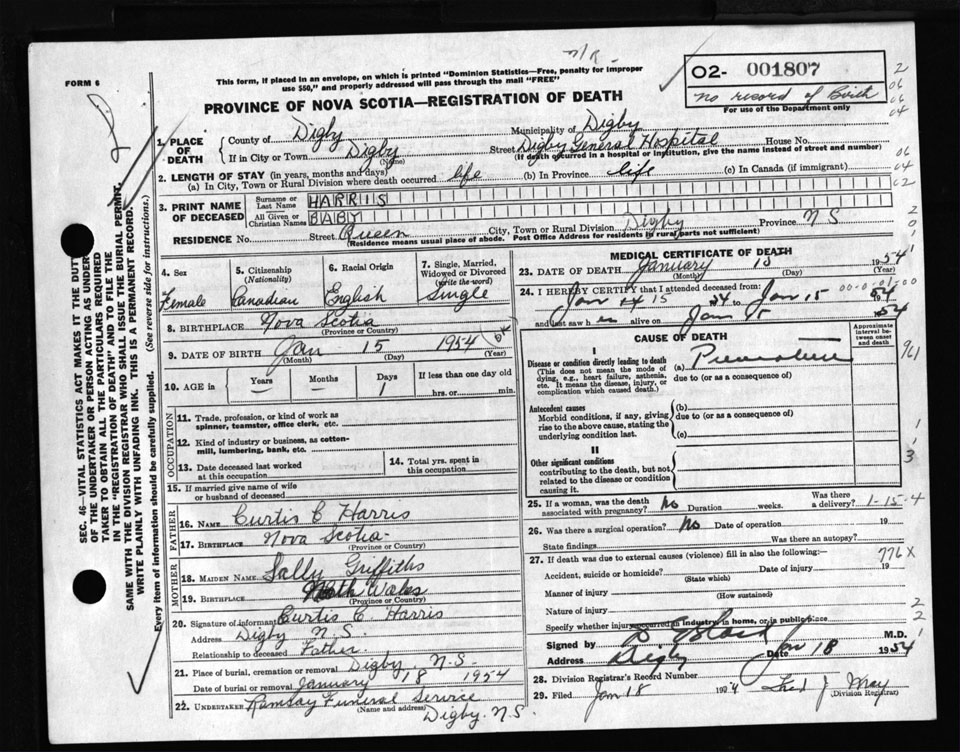 FORM 6
n/R -
This form, if placed in an envelope, on which is printed "Dominion Statistics—Free, penalty for improper
use $50," and properly addressed will pass through the mail "FREE"
O2- 001807
no record of Birth
For use of the Department only
PROVINCE OF NOVA SCOTIA—REGISTRATION OF DEATH
1. PLACE OF DEATH
County of Digby Municipality of Digby
If in City or Town Digby Street Digby General Hospital House No.
(Name) (If death occurred in a hospital or institution, give the name instead of street and number)
2. LENGTH OF STAY (in years, months and days)
(a) In City, Town or Rural Division where death occurred life (b) In Province life (c) In Canada (if immigrant)
3. PRINT NAME OF DECEASED
Surname or Last Name HARRIS
All Given or Christian Names BABY
RESIDENCE No. Street Queen City, Town or Rural Division Digby Province N S
(Residence means usual place of abode. Post Office Address for residents in rural parts not sufficient)
4. Sex Female
5. Citizenship (Nationality) Canadian
6. Racial Origin English
7. Single, Married, Widowed or Divorced (write the word) Single
8. BIRTHPLACE Nova Scotia
(Province or Country)
9. DATE OF BIRTH Jan 15 1954
(Month) (Day) (Year)
10. AGE in Years Months Days If less than one day old
— — 1 hrs. or min.
OCCUPATION
11. Trade, profession, or kind of work as
spinner, teamster, office clerk, etc.
12. Kind of industry or business, as cotton-
mill, lumbering, bank, etc.
13. Date deceased last worked
at this occupation
14. Total yrs. spent in
this occupation
15. If married give name of wife
or husband of deceased
FATHER
16. NAME Curtis C Harris
17. BIRTHPLACE Nova Scotia
(Province or Country)
MOTHER
18. MAIDEN NAME Sally Griffiths
19. BIRTHPLACE North Wales
(Province or Country)
20. Signature of informant Curtis C. Harris
Address Digby N.S.
Relationship to deceased Father.
21. Place of burial, cremation or removal Digby, N.S.
Date of burial or removal January 18 1954
22. UNDERTAKER Ramsay Funeral Service
(Name and address) Digby. N.S.
MEDICAL CERTIFICATE OF DEATH
23. DATE OF DEATH January 15 1954
(Month) (Day) (Year)
24. I HEREBY CERTIFY that I attended deceased from:
Jan 15 54 to Jan 15 1954
and last saw h er alive on Jan 15 1954
CAUSE OF DEATH
Approximate interval between onset and death
I
Disease or condition directly leading to death
(This does not mean the mode of
dying, e.g., heart failure, asthenia,
etc. It means the disease, injury, or
complication which caused death.)
(a) Premature
due to (or as a consequence of)
Antecedent causes
Morbid conditions, if any, giving
rise to the above cause, stating the
underlying condition last.
(b)
due to (or as a consequence of)
(c)
II
Other significant conditions
contributing to the death, but not
related to the disease or condition
causing it.
25. If a woman, was the death
associated with pregnancy? No Duration weeks. Was there a delivery? 1-15-4
26. Was there a surgical operation? No Date of operation 19
State findings Was there an autopsy?
27. If death was due to external causes (violence) fill in also the following:— 776X
Accident, suicide or homicide? Date of injury 19
(State which)
Manner of injury
(How sustained)
Nature of injury
Specify whether injury occurred in industry, in home, or in public place
Signed by M.D.
Address Digby Date Jan 18 1954
28. Division Registrar's Record Number
29. Filed Jan 18 1954 Fred J May
(Division Registrar)
SEC. 46—VITAL STATISTICS ACT MAKES IT THE DUTY
OF THE UNDERTAKER OR PERSON ACTING AS UNDER-
TAKER TO OBTAIN ALL THE PARTICULARS REQUIRED
IN THE "REGISTRATION OF DEATH" AND TO FILE THE
SAME WITH THE DIVISION REGISTRAR WHO SHALL ISSUE THE BURIAL PERMIT.
WRITE PLAINLY WITH UNFADING INK. THIS IS A PERMANENT RECORD.
Every item of information should be carefully supplied. (See reverse side for instructions.)